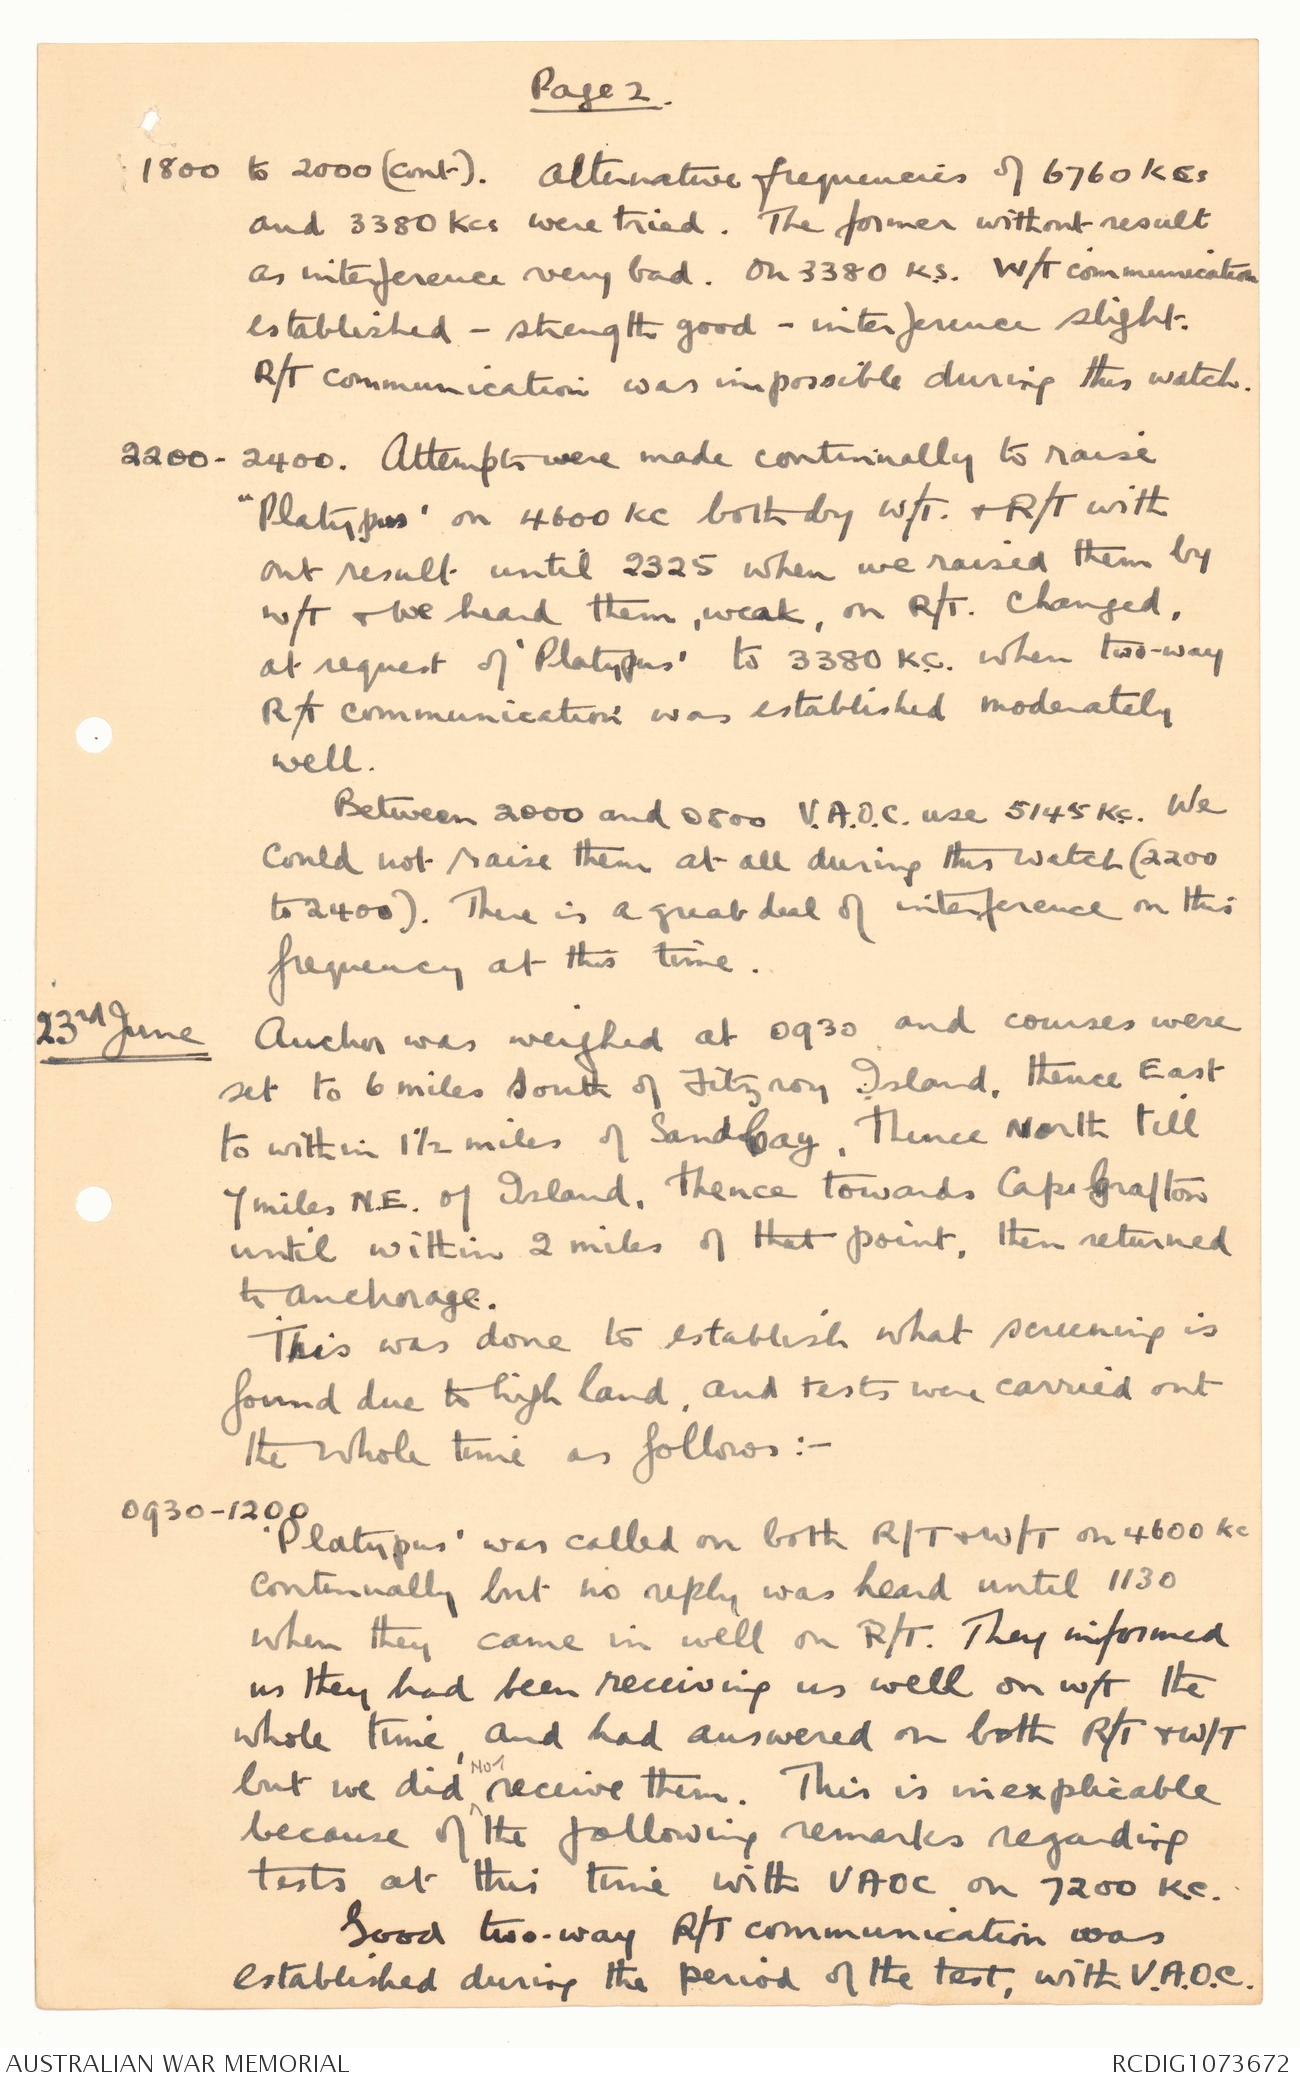 Page 2.
1800 to 2000 (cont). Alternative frequencies of 6760 Kcs
and 3380 Kcs were tried. The former without result
as interference very bad. On 3380 Ks. W/T communication
established - strength good - interference slight.
R/T communication was impossible during this watch.
2200 - 2400. Attempts were made continually to raise
"Platypus' on 4600 KC both by W/T. & R/T with
out result until 2325 when we raised them by
W/T & we heard them, weak, on R/T. Changed,
at request of 'Platypus' to 3380 KC. when two-way
R/T communication was established moderately
well.
Between 2000 and 0800 V.A.O.C. use 5145 Kc. We
could not raise them at all during this watch (2200
to 2400). There is a great deal of interference on this
frequency at this time.
23rd June Anchor was weighed at 0930 and courses were
set to 6 miles South of Fitzroy Island, thence East
to within 1½ miles of Sandbay, thence North till
7 miles N.E. of Island, thence towards Cape Grafton
until within 2 miles of that point, then returned
to anchorage.
This was done to establish what screening is
found due to high land, and tests were carried out
the whole time as follows:-
0930-1200
'Platypus' was called on both R/T & W/T on 4600 Kc
continually but no reply was heard until 1130
when they came in well on R/T. They informed
us they had been receiving us well on W/T the
whole time, and had answered on both R/T & W/T
but we did Not receive them. This is inexplicable
because of the following remarks regarding
tests at this time with VAOC on 7200 KC.
Good two-way R/T communication was
established during the period of the test, with V.A.O.C.
AUSTRALIAN WAR MEMORIAL
RCDIG1073672